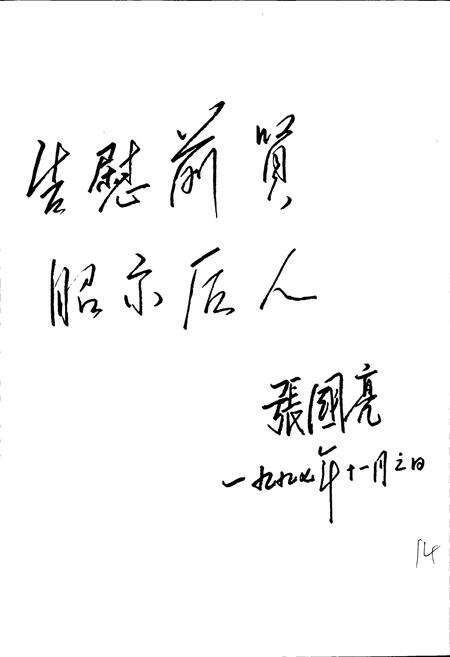 告慰前賢
昭示后人
張國亮
一九九七年十一月三日
14